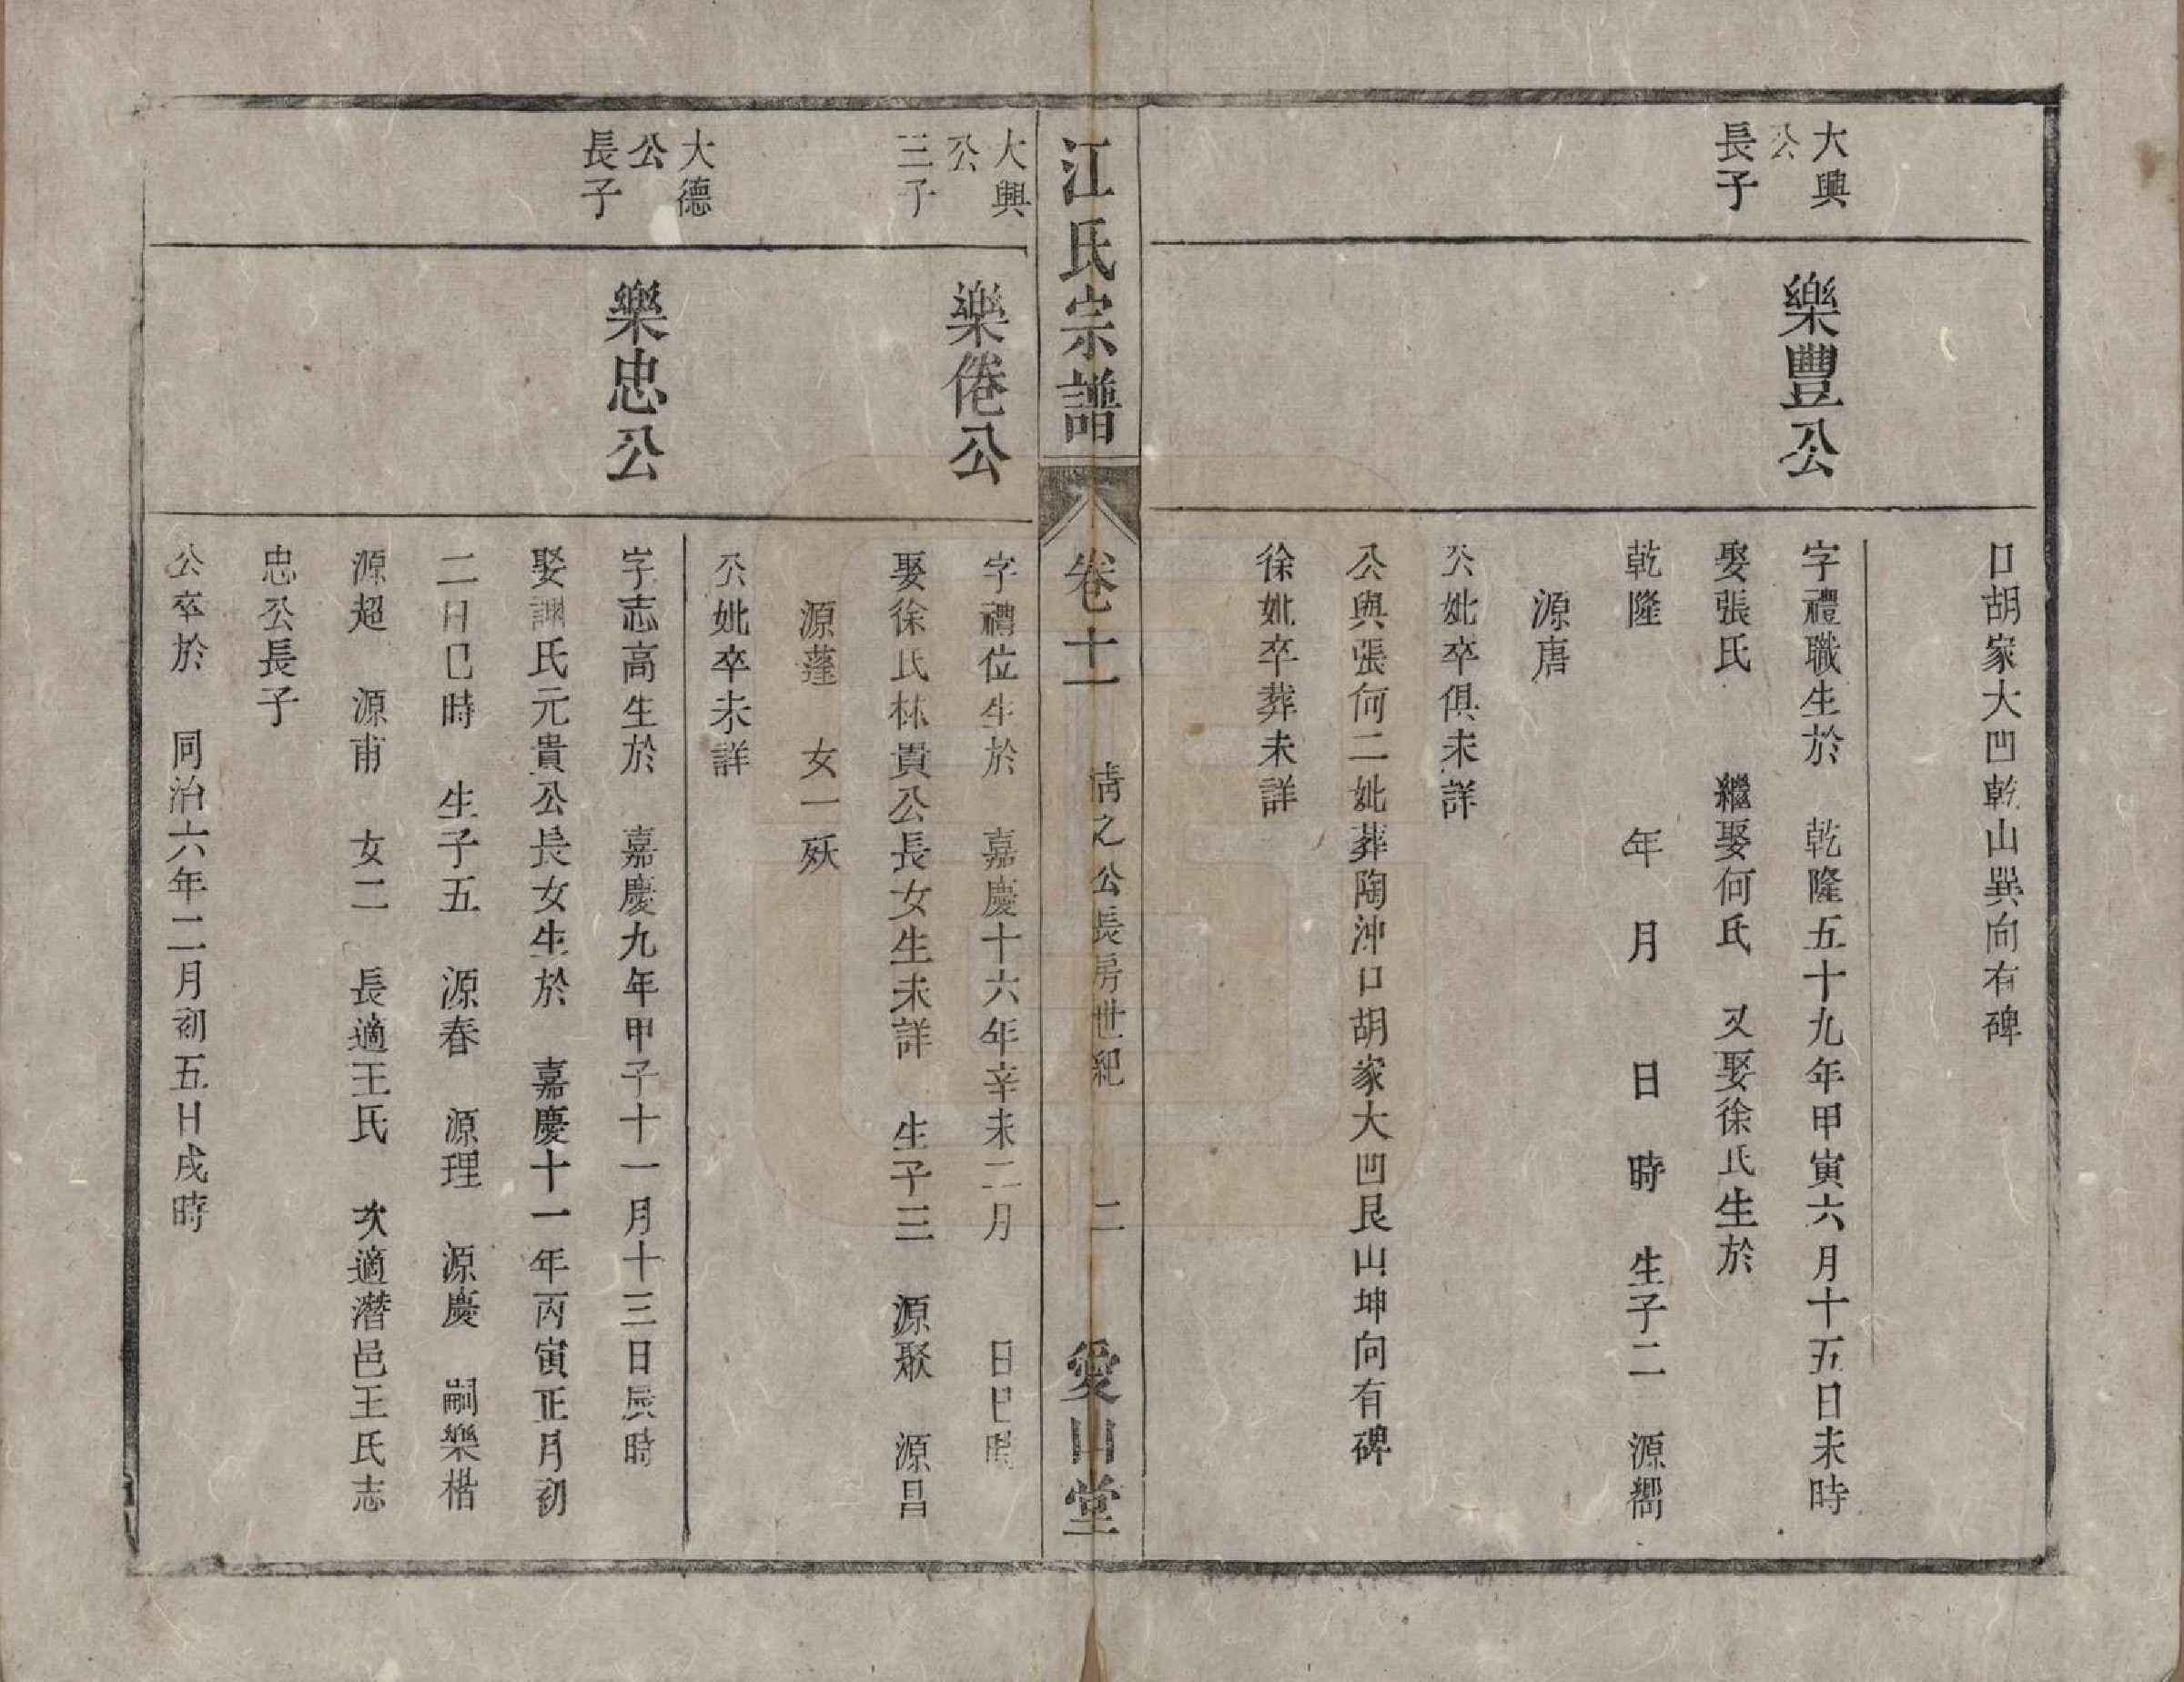 口胡家大凹乾山巽向有碑
大興
公
長子
樂豐公
字禮職生於 乾隆五十九年甲寅六月十五日未時
娶張氏 繼娶何氏 又娶徐氏生於
乾隆 年 月 日 時 生子二 源嚮
源唐
公妣卒俱未詳
公與張何二妣葬陶沖口胡家大凹艮山坤向有碑
徐妣卒葬未詳
江氏宗譜
卷十一 清之公長房世紀 二
愛日堂
大興
公
三子
樂倦公
字禮位生於 嘉慶十六年辛未二月 日巳時
娶徐氏林貴公長女生未詳 生子三 源聚 源昌
源蓬 女一殀
公妣卒未詳
大德
公
長子
樂忠公
字志高生於 嘉慶九年甲子十一月十三日辰時
娶謝氏元貴公長女生於 嘉慶十一年丙寅正月初
二日巳時 生子五 源春 源理 源慶 嗣樂楷
源超 源甫 女二 長適王氏 次適潛邑王氏志
忠公長子
公卒於 同治六年二月初五日戌時